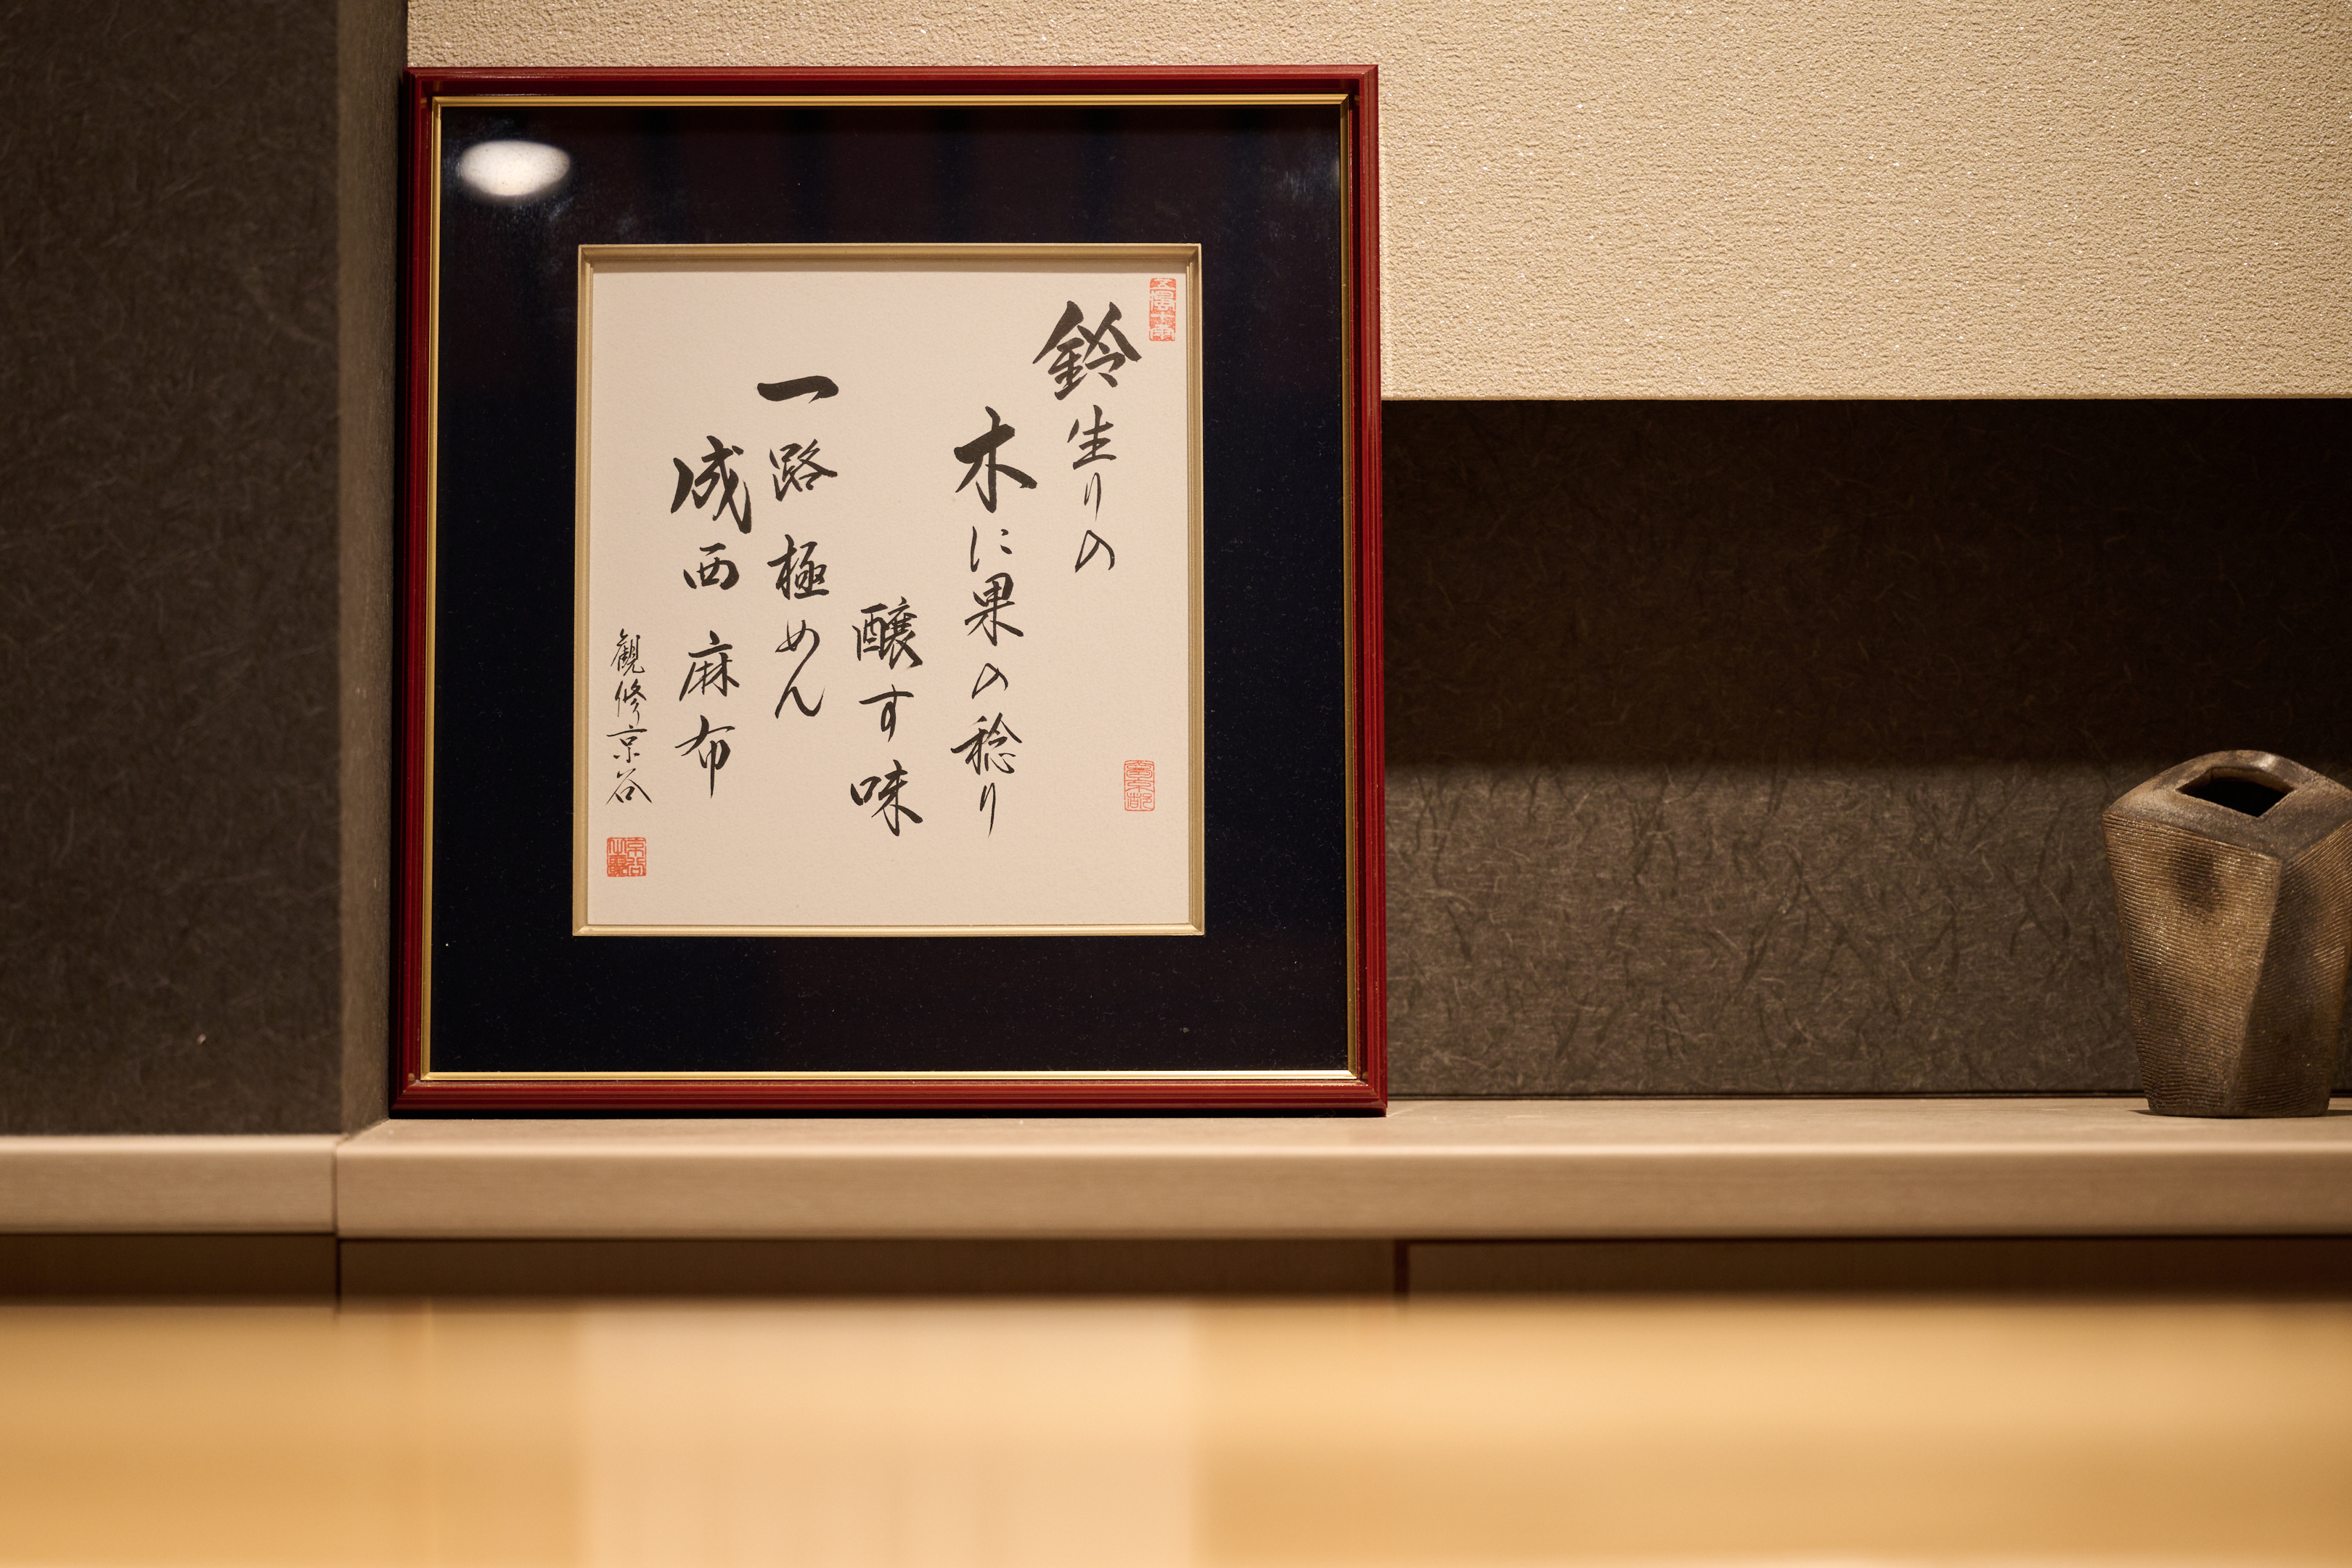 鈴生りの
木に果の稔り
醸す味
一路極めん
成西麻布
観修京谷